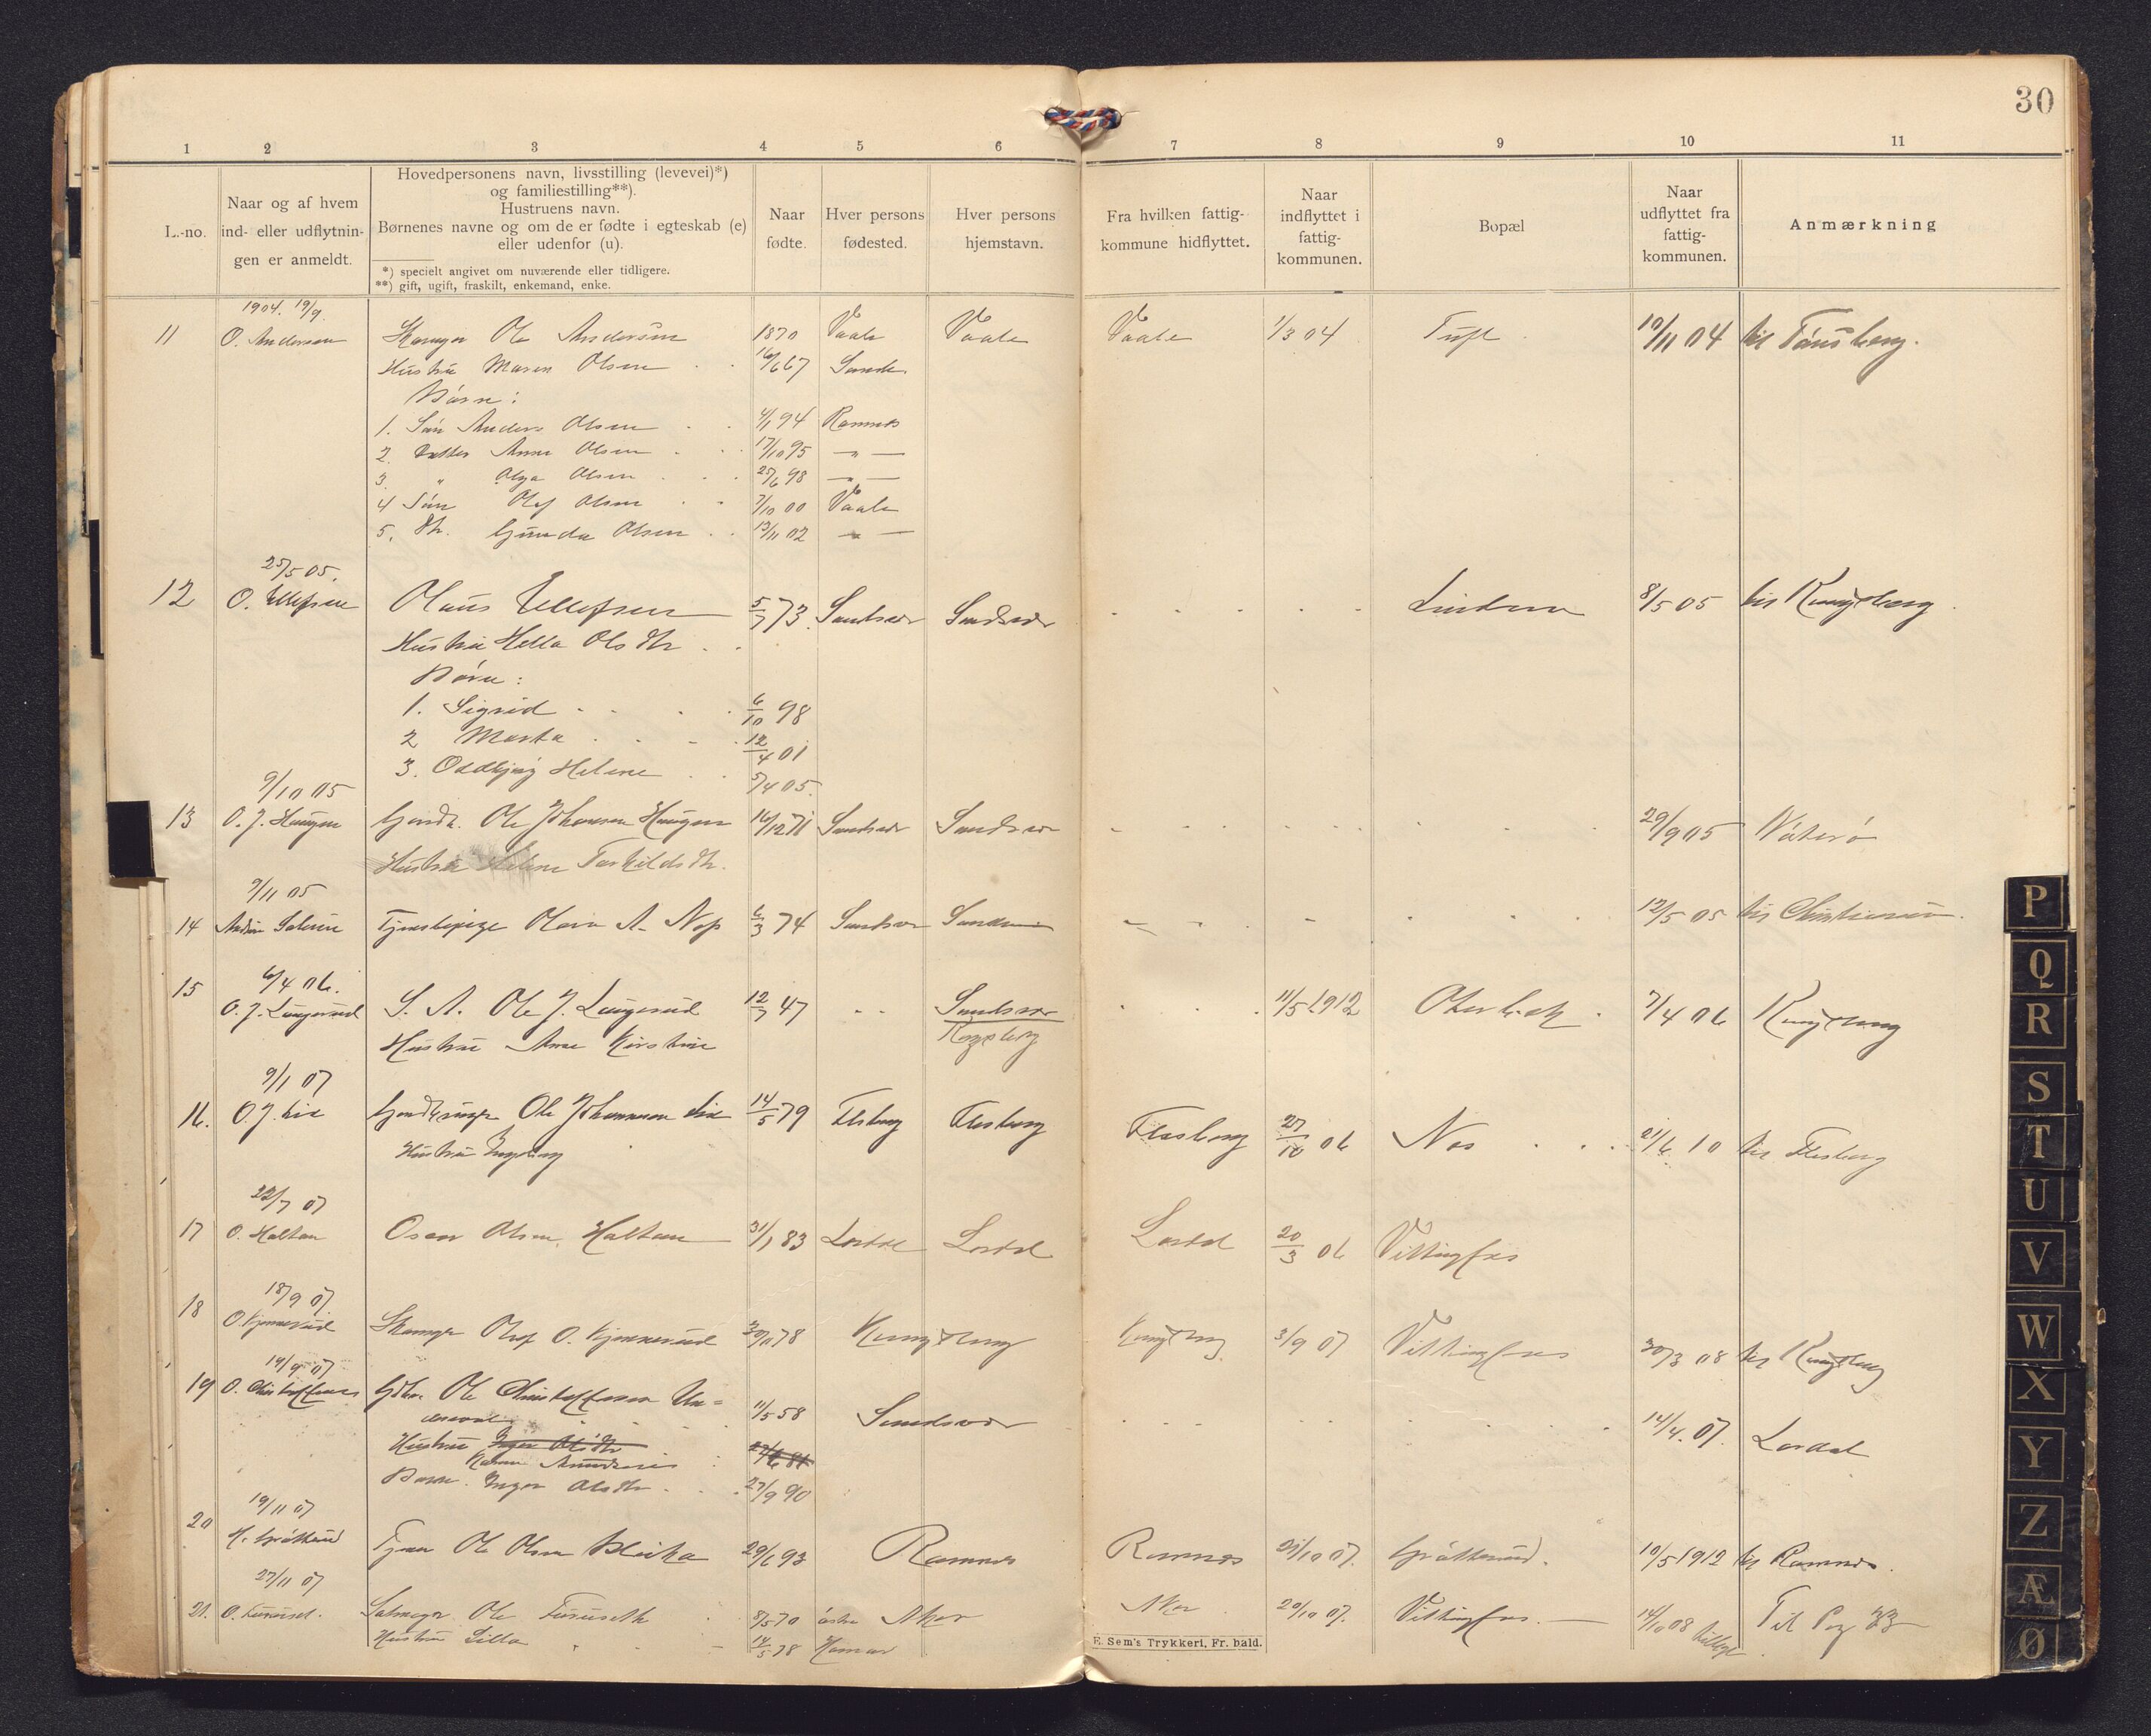 30
1 2 3 4 5 6 7 8 9 10 11
L.-no.
Naar og af hvem
ind- eller udflytnin-
gen er anmeldt.
Hovedpersonens navn, livsstilling (levevei)*)
og familiestilling**).
Hustruens navn.
Børnenes navne og om de er fødte i egteskab (e)
eller udenfor (u).
*) specielt angivet om nuværende eller tidligere.
**) gift, ugift, fraskilt, enkemand, enke.
Naar
fødte.
Hver persons
fødested.
Hver persons
hjemstavn.
Fra hvilken fattig-
kommune hidflyttet.
Naar
indflyttet i
fattig-
kommunen.
Bopæl
Naar
udflyttet fra
fattig-
kommunen.
Anmærkning
1904. 19/9
11 O. Andersen Ole Andersen 1870 Vaale Vaale Vaale 1/3 04 Tuft 10/11 04 til Tønsberg.
Hustru Maren Olsen 16/6 67 Sande
Børn:
1. Søn Anders Olsen 4/1 94 Ramnes
2. Datter Anna Olsen 17/10 95 — " —
3. " Olga Olsen 25/6 98 — " —
4 Søn Olaf Olsen 7/10 00 Vaale
5. Dtr. Gunda Olsen 13/11 02 — " —
25/5 05.
12 O. Ellefsen Olaus Ellefsen 5/7 73 Sandsvær Sandsvær Lindern 8/5 05 til Kongsberg
Hustru Hella Olsdtr
Børn:
1. Sigrid 6/10 98
2 Marta 12/4 01
3. Oddbjørg Helene 5/4 05.
9/10 05
13 O. J. Haugen Gaardb. Ole Johansen Haugen 16/12 71 Sandsvær Sandsvær 29/9 05 Nøterø
Hustru Helene Torkildsdtr.
9/11 05
14 Tjenestepige Olava A. 6/3 74 Sandsvær Sandsvær 12/5 05 til Christiania.
6/4 06.
15 O. J. Laugerud S. A. Ole J. Laugerud 12/7 47 Sandsvær 11/5 1912 7/4 06 Kongsberg
Hustru Anne Kirstine Kongsberg
9/1 07
16. O. J. Lie Ole Johannesen Lie 14/5 79 Flesberg Flesberg Flesberg 27/10 06 21/6 10 til Flesberg
Hustru Ingeborg
22/7 07
17 O. Holtan Olsen Holtan 31/1 83 Lardal Lardal Lardal 20/3 06 Vittingfos
18/9 07
18 O. Kjennerud Olaf O. Kjennerud 30/11 78 Kongsberg Kongsberg 3/9 07 Vittingfos 30/3 08 til Kongsberg
19/9 07
19 O. Christoffersen Ole Christoffersen 11/5 58 Sandsvær 14/4. 07. Lardal
Hustru Inger Olsdtr
Barn. Inger Olsdtr. 27/9 90
19/11 07
20 Tjener Ole Olsen Bleika 29/6 93 Ramnes Ramnes 21/10 07. Grøtterud. 10/5 1912 til Ramnes.
27/11 07
21. O. Furuset. Ole Furuseth 8/5 70 Aker Aker 20/10 07. Vittingfos. 14/10 08 Til Pag 33
Hustru Lilla 14/5 78 Hamar
E. Sem's Trykkeri, Fr. hald.
P
Q
R
S
T
U
V
W
X
Y
Z
Æ
Ø